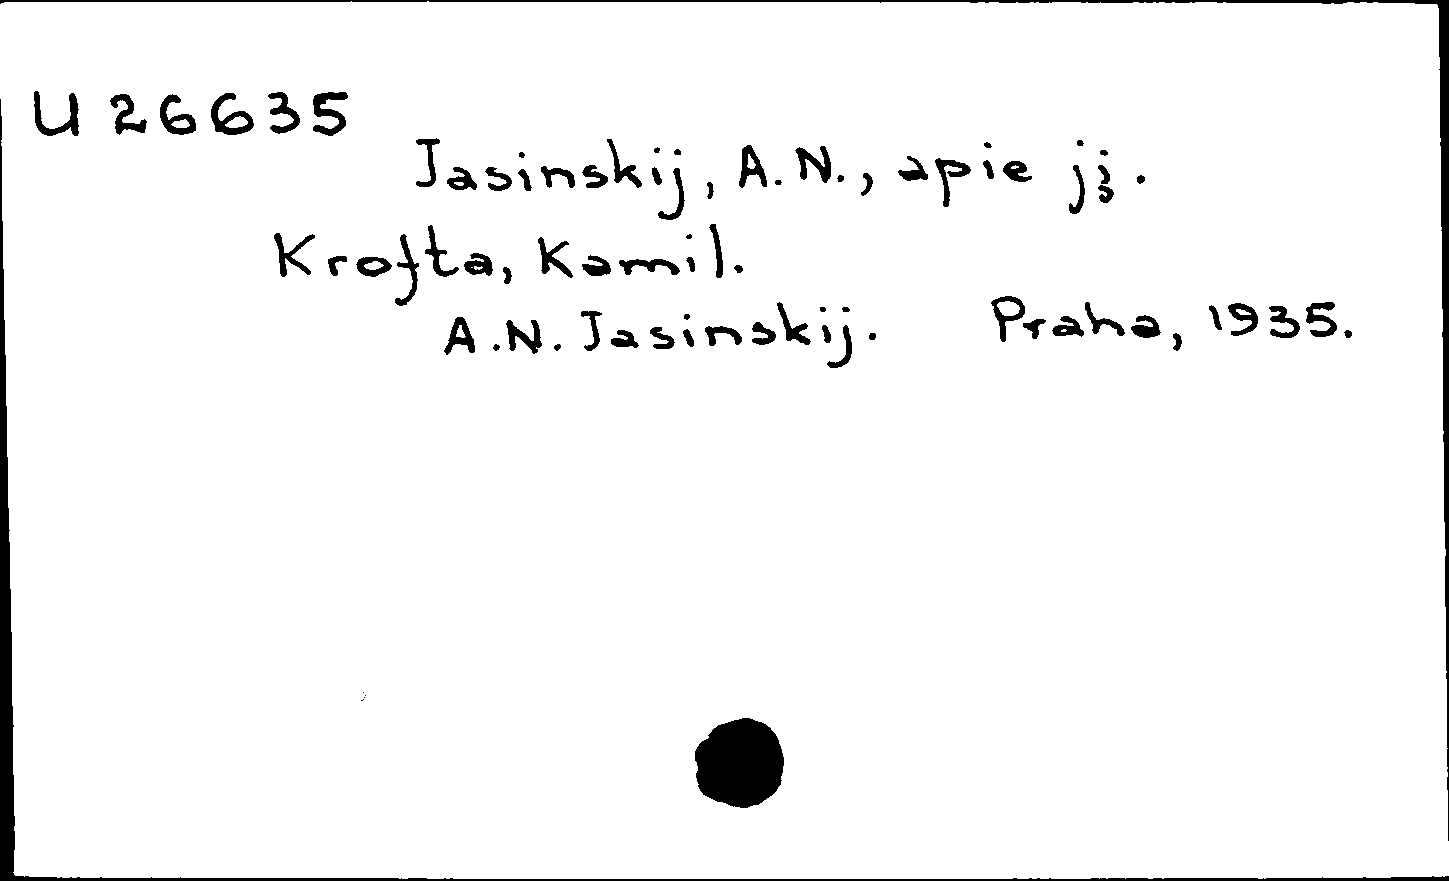 U 26635
Jasinskij, A. N., apie jį.
Krofta, Kamil.
A. N. Jasinskij. Praha, 1935.